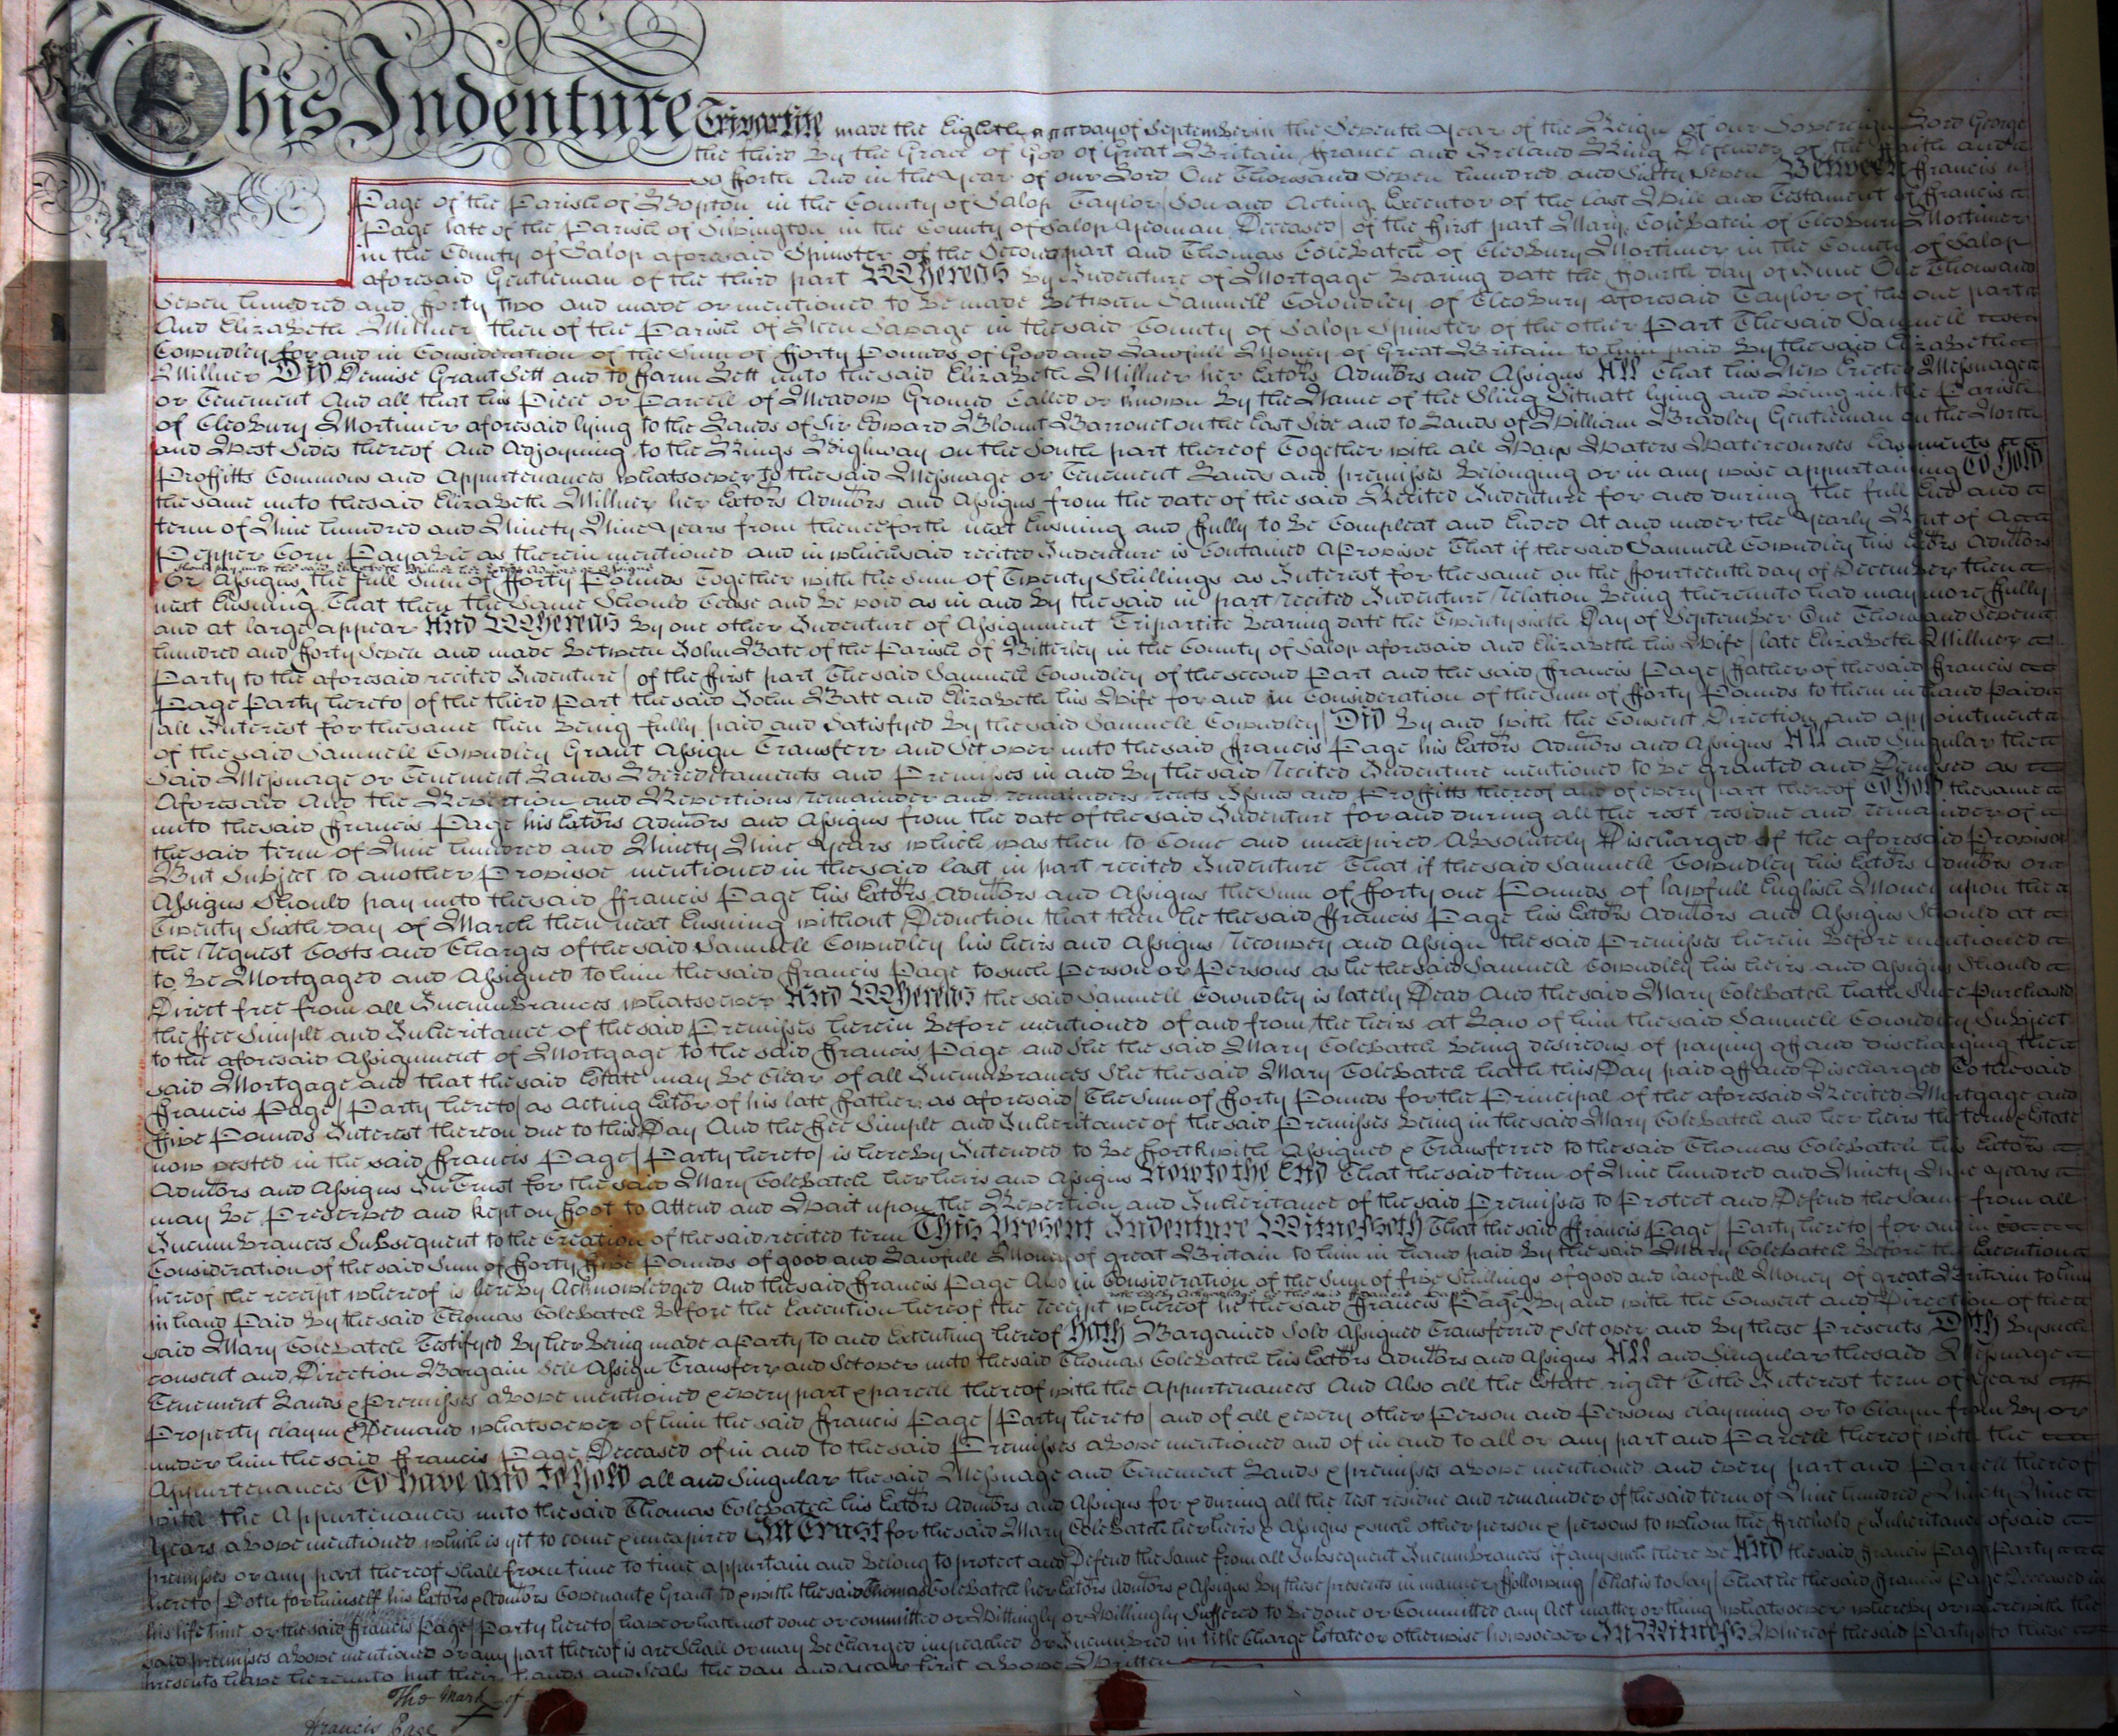 This Indenture Tripartite made the Eighth day of September in the Seventh Year of the Reign of our Sovereign Lord George
the third By the Grace of God of Great Britain ffrance and Ireland King Defender of the ffaith and
So fforth And in the Year of our Lord One Thousand Seven hundred and Sixty Seven Between ffrancis
Page of the Parish of Hopton in the County of Salop Taylor / Son and Acting Executor of the Last Will and Testament of ffrancis
Page late of the Parish of Silvington in the County of Salop Yeoman Deceased / of the first part Mary Colebatch of Cleobury Mortimer
in the County of Salop aforesaid Spinster of the Second part and Thomas Colebatch of Cleobury Mortimer in the County of Salop
aforesaid Gentleman of the third part Whereas By Indenture of Mortgage bearing date the ffourth day of June One Thousand
Seven hundred and fforty two and made or mentioned to be made Between Samuell Cowndley of Cleobury aforesaid Taylor of the one part
And Elizabeth Millner then of the Parish of Neen Savage in the said County of Salop Spinster of the other Part The said Samuell
Cowndley for and in Consideration of the Sum of fforty Pounds of Good and Lawfull Money of Great Britain to him paid By the said Elizabeth
Millner Did Demise Grant Sett and to ffarm Lett unto the said Elizabeth Millner her Extors Admtors and Assigns All that his New Erected Messuage
or Tenement And all that his Piece or Parcell of Meadow Ground Called or known By the Name of the Sling Situate lying and Being in the Parish
of Cleobury Mortimer aforesaid lying to the Lands of Sir Edward Blount Barronet on the East Side and to Lands of William Bradley Gentleman on the North
and West Sides thereof And Adjoyning to the Kings Highway on the South part thereof Together with all Ways Waters Watercourses Easments
Proffitts Commons and Appurtenances whatsoever to the said Messuage or Tenement Lands and premisses Belonging or in any wise appurtaining To Hold
the same unto the said Elizabeth Millner her Extors Admtors and Assigns from the date of the said Recited Indenture for and during the full End and
term of Nine hundred and Ninety Nine years from thenceforth next Ensuing and fully to be Compleat and Ended At and under the Yearly Rent of A
Pepper Corn Payable as therein mentioned and in which said recited Indenture is Contained A Provisoe That if the said Samuell Cowndley his Extors Admtors
should pay unto the said Elizabeth Millner her Extors Admors or Assigns
Or Assigns the full Sum of fforty Pounds Together with the Sum of Twenty Shillings as Interest for the same on the ffourteenth day of December then
next Ensuing That then the Same Should Cease and be void as in and By the said in part recited Indenture / relation Being thereunto had may more fully
and at large appear And Whereas By one other Indenture of Assignment Tripartite bearing date the Twenty sixth Day of September One Thousand Seven
hundred and fforty Seven and made Between John Bate of the Parish of Bitterley in the County of Salop aforesaid and Elizabeth his Wife / late Elizabeth Millner
Party to the aforesaid recited Indenture / of the ffirst part The said Samuell Cowndley of the second Part and the said ffrancis Page / ffather of the said ffrancis
Page Party hereto / of the third Part the said John Bate and Elizabeth his Wife for and in Consideration of the Sum of fforty Pounds to them in hand paid
/ all Interest for the same then Being fully paid and Satisfyed By the said Samuell Cowndley / Did By and with the Consent Direction and appointment
of the said Samuell Cowndley Grant Assign Transferr and Set over unto the said ffrancis Page his Extors Admtors and Assigns All and Singular the
Said Messuage or Tenement Lands Hereditaments and Premisses in and By the said recited Indenture mentioned to be granted and Demised as
Aforesaid And the Revertion and Revertions remainder and remainders rents Issues and Proffitts thereof and of every part thereof To Hold the same
unto the said ffrancis Page his Extors Admtors and Assigns from the date of the said Indenture for and during all the rest residue and remainder of
the said term of Nine hundred and Ninety Nine Years which was then to Come and unexpired Absolutely Discharged of the aforesaid Provisoe
But Subject to another Provisoe mentioned in the said last in part recited Indenture That if the said Samuell Cowndley his Extors Admtors or
Assigns Should pay unto the said ffrancis Page his Extors Admtors and Assigns the Sum of fforty one Pounds of lawfull English Money upon the
Twenty Sixth day of March then next Ensuing without Deduction that then he the said ffrancis Page his Extors Admtors and Assigns Should at
the request Costs and Charges of the said Samuell Cowndley his heirs and Assigns / reconvey and Assign the said Premisses herein Before mentioned
to be Mortgaged and Assigned to him the said ffrancis Page to such Person or Persons as he the said Samuell Cowndley his heirs and Assigns Should
Direct free from all Incumbrances whatsoever And Whereas the said Samuell Cowndley is lately Dead And the said Mary Colebatch hath Since Purchased
the ffee Simple and Inheritance of the said Premisses herein Before mentioned of and from the heirs at Law of him the said Samuell Cowndley Subject
to the aforesaid Assignment of Mortgage to the said ffrancis Page and She the said Mary Colebatch being desireous of paying off and discharging the
said Mortgage and that the said Estate may be Clear of all Incumbrances She the said Mary Colebatch hath this Day paid off and Discharged To the said
ffrancis Page / Party hereto / as Acting Extor of his late ffather as aforesaid / The Sum of fforty Pounds for the Principal of the aforesaid Recited Mortgage and
ffive Pounds Interest thereon due to this Day And the ffee Simple and Inheritance of the said Premisses being in the said Mary Colebatch and her heirs the term & Estate
now vested in the said ffrancis Page / Party hereto / is hereby Intended to be fforthwith Assigned & Transferred to the said Thomas Colebatch his Extors
Admtors and Assigns In Trust for the said Mary Colebatch her heirs and Assigns Now to the End That the said term of Nine hundred and Ninety Nine years
may be Preserved and kept on ffoot to Attend and Wait upon the Revertion and Inheritance of the said Premisses to Protect and Defend the Same from all
Incumbrances Subsequent to the Creation of the said recited term This Present Indenture Witnesseth That the said ffrancis Page / Party hereto / for and in
Consideration of the said Sum of fforty ffive Pounds of good and Lawfull Money of great Britain to him in hand paid By the said Mary Colebatch Before the Execution
hereof the receipt whereof is hereby Acknowledged And the said ffrancis Page Also in Consideration of the Sum of five Shillings of good and lawfull Money of great Britain to him
in hand Paid By the said Thomas Colebatch Before the Execution hereof the receipt whereof he the said ffrancis Page By and with the Consent and Direction of the
said Mary Colebatch Testifyed By her Being made a Party to and Executing hereof Hath Bargained Sold Assigned Transferred & Set over and By these Presents Doth By such
consent and Direction Bargain Sell Assign Transferr and Set over unto the said Thomas Colebatch his Extors Admtors and Assigns All and Singular the said Messuage
Tenement Lands & Premisses above mentioned & every part & parcell thereof with the Appurtenances And Also all the Estate right Title Interest term of Years
Property claym & Demand whatsoever of him the said ffrancis Page / Party hereto / and of all & every other Person and Persons clayming or to Claym from By or
under him the said ffrancis Page Deceased of in and to the said Premisses above mentioned and of in and to all or any part and Parcell thereof with the
Appurtenances To have and to hold all and Singular the said Messuage and Tenement Lands & premisses above mentioned and every part and Parcell thereof
with the Appurtenances unto the said Thomas Colebatch his Extors Admtors and Assigns for & during all the rest residue and remainder of the said term of Nine hundred & Ninety Nine
Years above mentioned which is yet to come & unexpired In Trust for the said Mary Colebatch her heirs & Assigns & such other person & persons to whom the ffreehold & Inheritance of said
premisses or any part thereof Shall from time to time appurtain and belong to protect and Defend the Same from all Subsequent Incumbrances if any such there be And the said ffrancis Page / Party
hereto / Doth for himself his Extors & Admtors Covenant & Grant to & with the said Thomas Colebatch her Extors Admtors & Assigns By these presents in manner ffollowing / That is to Say / That he the said ffrancis Page Deceased in
his life time or the said ffrancis Page / Party hereto / have or hath not done or committed or Wittingly or Willingly Suffered to be done or Committed any Act matter or thing whatsoever whereby or wherewith the
said premisses above mentioned or any part thereof is are Shall or may be Charged impeached or Incumbred in title Charge Estate or otherwise howsoever In Witness Whereof the said Partys to these
presents have hereunto put their hands and Seals the day and year first above Written
The Mark of
Francis Page